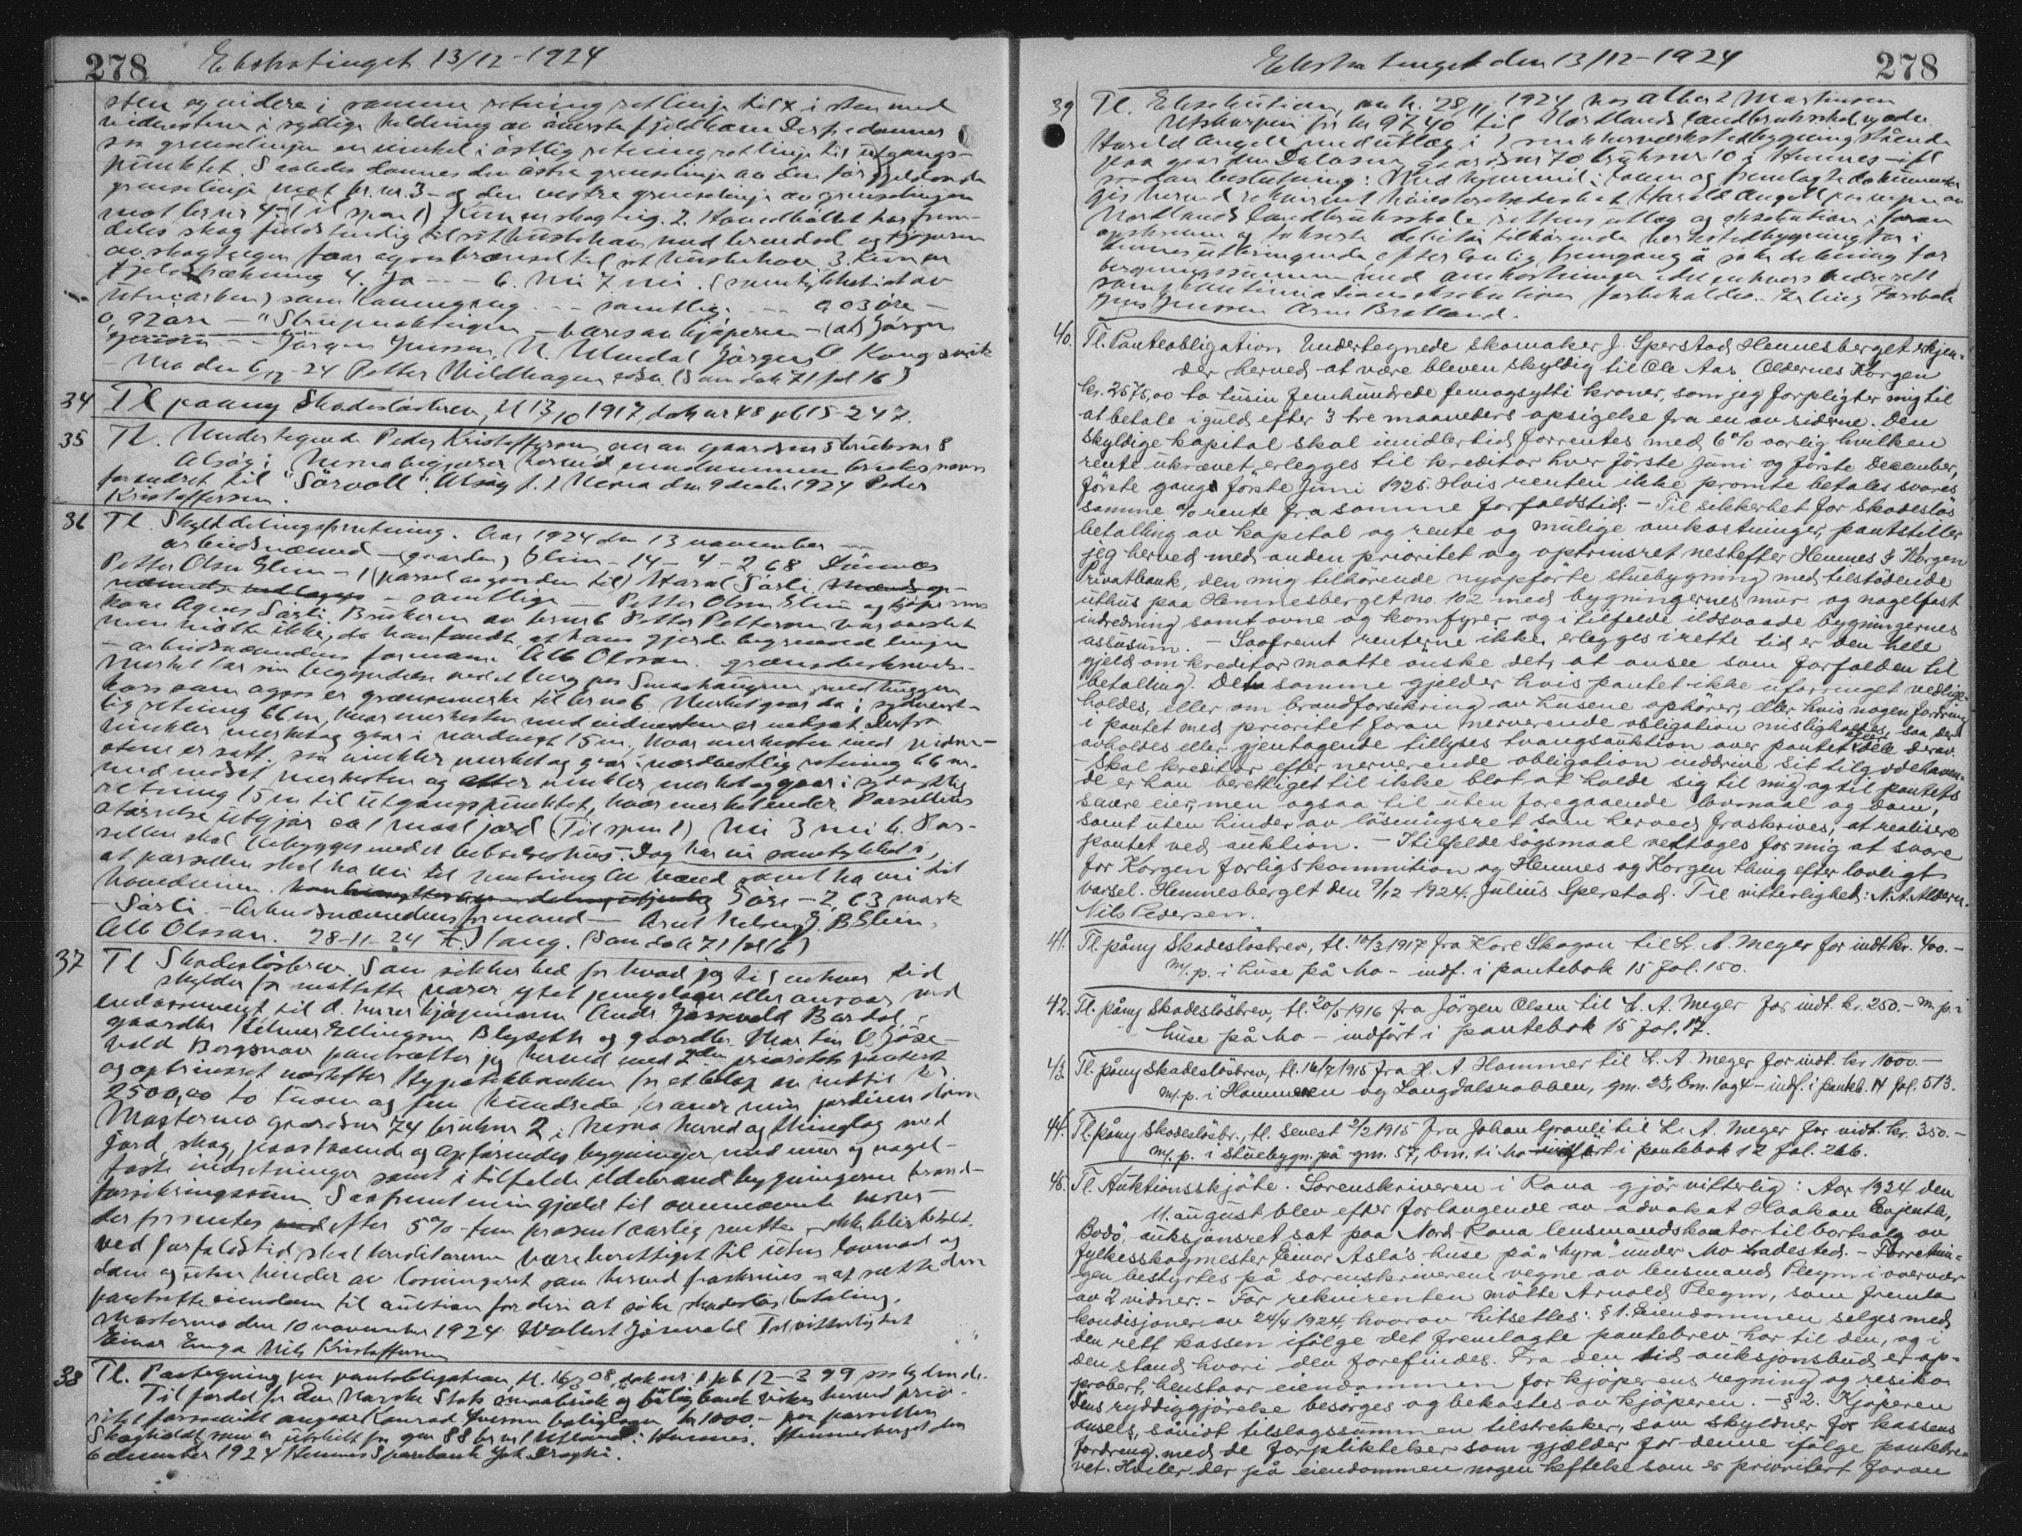 278 Ekstratinget 13/12-1924
sten og videre i samme retning ret linje til x i sten med
vidnesten i sydlig heldning av øverste fjeldkam Derfra dannes
saa grænselinjen en vinkel i østlig retning ret linje til utgangs-
punktet. Saaledes dannes den østre grenselinje av den før gjeldende
grenselinje mot br. nr. 3 - og den vestre grenselinje av grenselinjen
mot br nr 4. (til spm 1) Kun en skogteig. 2. Hovedbølet har frem-
deles skog fuldstendig til sit husbehov med brendsel og kjøperen
av skogteigen faar ogsaa brænsel til sit husbehov 3. Kun en
fjeldstrækning 4. Ja - - - 6. Nei 7 nei. (samtykket i at av
utmarken) som havnegang - - samtlig - - - 0 03 øre -
0,92 øre - " Skrupsætningen - bæres av kjøperen - (at) Jørgen
Jenssen - - Jørgen Jenssen. N. Umdal Jørgen A. Kangsvik
- Mo den 6/12-24 Petter Wildhagen edsv. (San dok 71 fol 16)
34 Tl paany Skadesløsbrev, tl 13/10 1917, dok nr 48 pb 15-247.
35 Tl. Undertegnede Peder Kristoffersen eier av gaardsnr 5 bruksnr 8
Alsøg i Nesna begjærer herved eiendommens bruksnavn
forandret til "Sörvoll". Alsøg p. t Nesna den 9 decbr. 1924 Peder
Kristoffersen.
36 Tl. Skylddelingsforretning. Aar 1924 den 13 november -
arbeidsnævnd - (gaarden) Glein - 14 - 4 - 2,68 Dønnes
Petter Olsen Glein - 1 (parsel av gaarden til) Haral Sørli.
- samtlige - Petter Olsen Glein og kjøperens
kone Agnes Sørli. Brukeren av br nr 6 Petter Pettersen var varslet
men møtte ikke, da han fandt at hans gjerde begrænsed linjen
- arbeidsnævndens formand Alb Olssøn. grænsebeskrivelse -
Merket tar sin begyndelse ved et berg paa Smaahaugene, med hugget
kors som ogsaa er grænsemerke til br nr 6 Merket gaar da i sydvest-
lig retning 66 m, hvor merkesten med vidnesten er nedsat. Derfra
vinkler merket og gaar i nordvest 15 m, hvor merkesten med vidne-
stene er satt. saa vinkler merket og gaar i nordøstlig retning 66 m.
med nedsat merkesten og atter vinkler merket og gaar i sydøstlig
retning 15 m til utgangspunktet, hvor merket ender Parsellens
størrelse utgjør ca 1 maal jord (Til spm 1) Nei 3 nei 6. Par-
sellen skal bebygges med et beboelseshus. Dog har vi samtykket i,
at parsellen skal ha vei til samt ha vei til
hovedveien. 5 øre - 2,63 mark
- Sørli - Arbeidsnævndens formand - Arnt Nilsen J. B. Glein.
Alb Olssøn. 28-11-24 Stang. (San dok 71 fol 16)
37 Tl Skadesløsbrev. Som sikkerhed for hvad jeg til enhver tid
skylder for mottatte varer ytet pengelaan eller ansvar ved
endossement til d. herrer kjøpmann Andr Jøsevold Bardal,
gaardbr Hilmar Ellingsen Blyseth og gaardbr. Martin O Jøse-
vold Bergsnov pantsætter jeg herved med 2den prioritets panteret
og optrinsret næstefter Hypotekbanken for et beløp av indtil kr
2500,00 to tusen og fem hundrede kroner min jordeiendom
Mastermo gaardsnr 74 bruksnr 2 i Nesna herred og thinglag med
jord, skog, paastaaende og opførendes bygninger med mur og nagel-
faste indretninger samt i tilfelde ildebrand bygningerne brand-
forsikringssum. Saafremt min gjæld til ovennævnte herrer -
der forrentes efter 5% - fem procent aarlig rente - ikke blir betalt
ved forfaldstid, skal kreditorerne være berettiget til uten lovmaal og
dom og uten hinder av løsningsret som herved fraskrives - at sætte den
pantsatte eiendom til auktion for deri at søke skadesløs betaling.
Mastermo den 10 november 1924 Wollert Jøsevold Til vitterlighet
Einar Enga Nils Kristoffersen
38 Tl. Paategning paa pantobligation, tl. 16/3 08, dok nr 1 pb 12-299 saalydende.
Til fordel for den Norske Stats smaabruk og boligbank vikes herved prio-
ritet forsaavidt angaar Konrad Iversens boliglaan kr 1000.- paa parsellen
Skoglidt, som er utskilt fra gnr 88 br nr 1 Utland i Hemnes. Hemnesberget den
6 december 1924 Hemnes Sparebank Joh Dragli.
Ekstratinget den 13/12-1924 278
39 Tl. Eksekution, av h. 28/11 1924 hos Albert Martinsen
Utskarpen for kr 92 40 til Nordlands landbruksskole, ved
Harald Angell med utlæg i 1 snekkerverkstedbygning stående
paa grunden Dalosen gaardsnr 70 bruksnr 10 i Hemnes - ifl
saadan beslutning: Med hjemmel i loven og fremlagte dokumenter
gis herved rekvirent høiesteretsadvokat Harald Angell paa vegne av
Nordlands landbruksskole rettens utlæg og eksekution i foran
opskrevne og takserte debitor tilhørende verkstedbygning for i
dennes utbringende efter lovlig fremgang å søke dekning for
bergningssummen med omkostninger alt enhvers bedre rett
samt kontinuationseksekution forbeholdes. Erling Forsbak
Jens Jenssen Arne Bratland.
40. Tl. Panteobligation. Undertegnede skomaker J. Sperstad Hemnesberget erkjen-
der herved at være bleven skyldig til Ole Aas Oldernes Korgen
kr. 2575,00 to tusin femhundrede femogsytti kroner, som jeg forpligter mig til
at betale i guld efter 3 tre maaneders opsigelse fra en av siderne. Den
skyldige kapital skal imidlertid forrentes med 6% aarlig hvilken
rente ukrævet erlegges til kreditor hver første juni og første december,
første gang første juni 1925. Hvis renten ikke promte betales svares
samme % rente fra samme forfaldstid. - Til sikkerhet for skadesløs
betalling av kapital og rente og mulige omkostninger, pantstiller
jeg herved med anden prioritet og optrinsret nestefter Hemnes & Korgen
Privatbank, den mig tilhörende nyopförte stuebygning med tilstødende
uthus paa Hemnesberget no. 102 med bygningernes mur og nagelfast
indredning samt ovne og komfyrer og i tilfelde ildsvaade bygningernes
assusum. - Saafremt renterne ikke erlegges i rette tid er den hele
gjeld om kreditor maatte ønske det, at ansee som forfalden til
betalling. Det samme gjelder hvis pantet ikke uforringet vedlige-
holdes, eller om brandforsikring av husene ophører, eller hvis nogen fordring
i pantet med prioritet foran nerværende obligation misligholdes, saa der
avholdes eller gjentagende tillyses tvangsauktion over pantet eller dele derav.
- Skal kreditor efter nerværende obligation inddrive sit tilgodehaven-
de er han berettiget til ikke blot at holde sig til mig og til pantets
senere eier, men ogsaa til uten foregaaende lovmaal og dom,
samt uten hinder av løsningsret som herved fraskrives, at realisere
pantet ved auktion. - I tilfelde søgsmaal vedtages for mig at svare
for Korgen forligskommition og Hemnes og Korgen thing efter lovligt
varsel. Hemnesberget den 9/12 1924. Julius Sperstad. Til vitterlighed: N. A. Aldern.
Nils Pedersen.
41. Tl. påny Skadesløsbrev, tl. 10/3 1917 fra Karl Skogan til L. A. Meyer for indt. kr. 400.-
m/. p. i huse på Mo - indf. i pantebok 15 fol. 150.
42. Tl. påny Skadesløsbrev, tl. 20/5 1916 fra Jörgen Olsen til L. A. Meyer for indt. kr. 250.- m. p. i
huse på Mo - indført i pantebok 15 fol. 17.
43. Tl. påny Skadesløsbrev, tl. 16/7 1915 fra H. A. Hammer til L. A. Meyer for indt. kr. 1000-
m/. p. i Hammeren og Langdalsrabben, gm. 28, bm. 1 og 4 - indf. i panteb. 14 fol. 513.
44. Tl. påny Skadesløsbr., tl. senest 2/2 1915 fra Johan Granli til L. A. Meyer for indt. kr. 350.-
m/. p. i stuebygn. på gm. 57, bm. 1 i Mo indført i pantebok 12 fol. 266.
45. Tl. Auktionsskjöte. Sorenskriveren i Rana gjör vitterlig: Aar 1924 den
11. august blev efter forlangende av advokat Haakon Evjenth,
Bodö, auksjonsret sat paa Nord Rana lensmandskontor til bortsalg av
fylkesskogmester Einar Asla's huse på "Lyra" under Mo ladested. - Forretnin-
gen bestyrtes på sorenskriverens vegne av lensmand Pleym i overvær
av 2 vidner. - For rekvirenten mötte Arnold Pleym, som fremla
kondisjoner av 24/4 1924, hvorav hitsettes: § 1. Eiendommen selges med
den rett kassen ifölge det fremlagte pantebrev har til den, og i
den stand hvori den forefindes. Fra den tid auksjonsbud er ap-
probert, henstaar eiendommen for kjöperens regning og resiko.
Dens ryddiggjörelse besorges og bekostes av kjöperen. - § 2. Kjöperen
ansees, såvidt tilslagssummen tilstrekker, som skyldner for kassens
fordring med de forpliktelser som gjælder for denne ifölge pantebre-
vet. Hviler der på eiendommen nogen heftelse som er prioritert foran